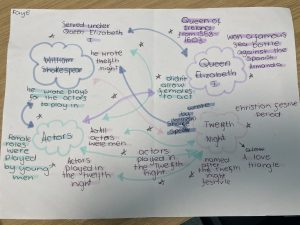 Faye
Served under
Queen Elizabeth
I
Queen of
Ireland
from 1558
1603
won a famous
sea battle
against the
Spanish
Armada
he wrote
twelfth
night
William
Shakespear
Queen
Elizabeth
I
he wrote plays
for the actors
to play in
didn't
allow
females
to act
christian
period
Actors
all
actors
were men
Twelfth
Night
female
roles
were
played
by young
men
Actors
played in
the Twelfth
night
actors
played in
the twelfth
night
named
after
the Twelfth
night
festivle
a love
triangle